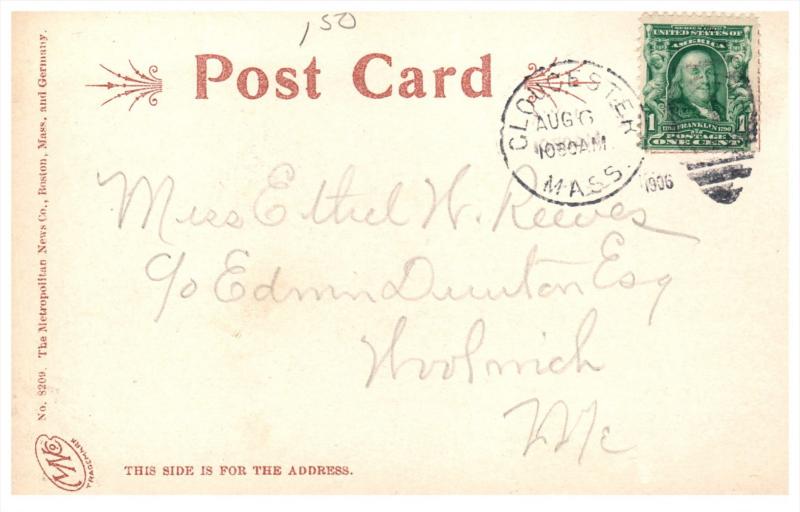 150
Post Card
SERIES 1902
UNITED STATES OF
AMERICA
1 1732 FRANKLIN 1790 1
POSTAGE
ONE CENT
GLOUCESTER
AUG 6
1030 AM
MASS.
1906
Miss Ethel W. Reeves
c/o Edwin Dunton Esq
Woolwich
Me
No. 8209. The Metropolitan News Co., Boston, Mass. and Germany.
TRADEMARK
THIS SIDE IS FOR THE ADDRESS.